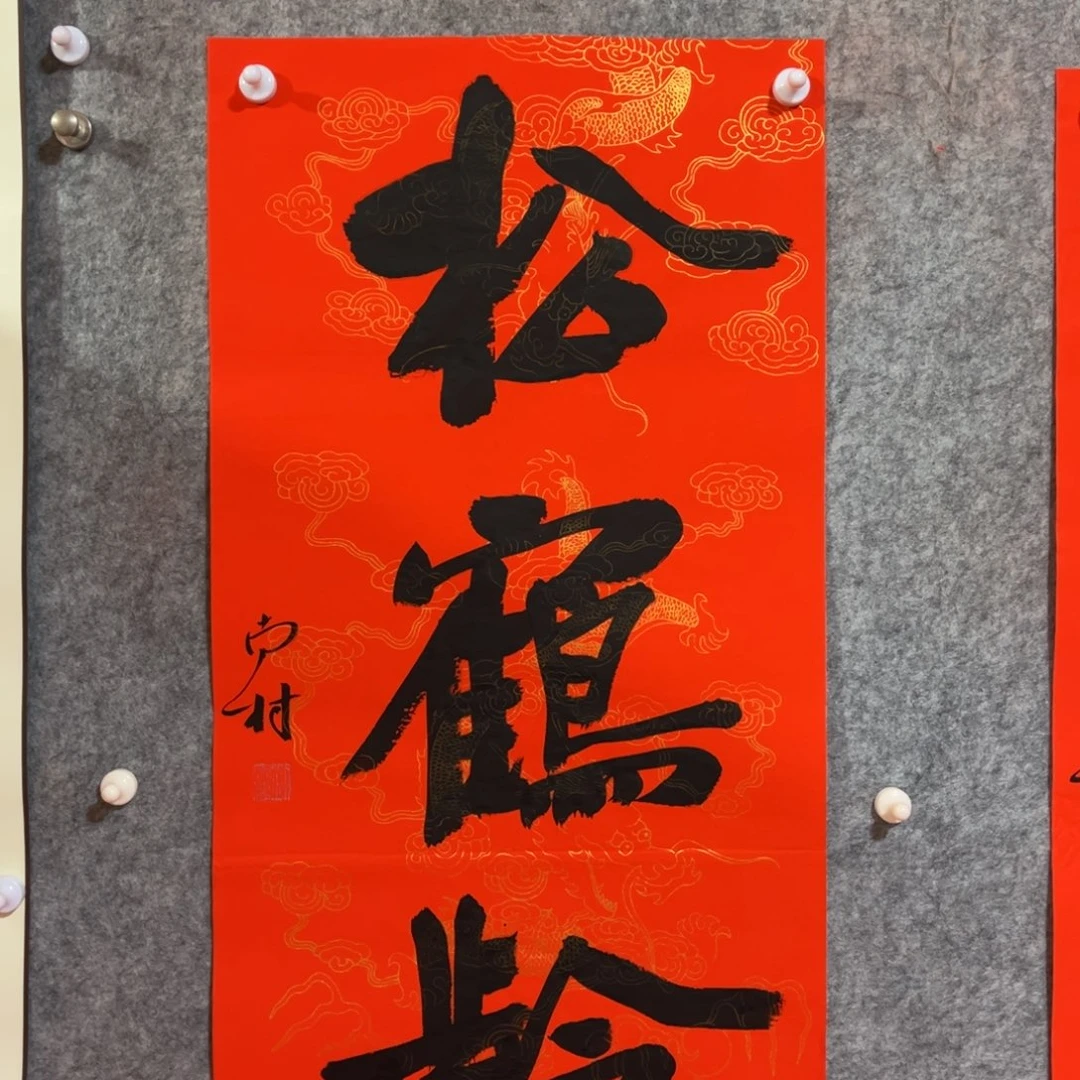 松鶴齡
村